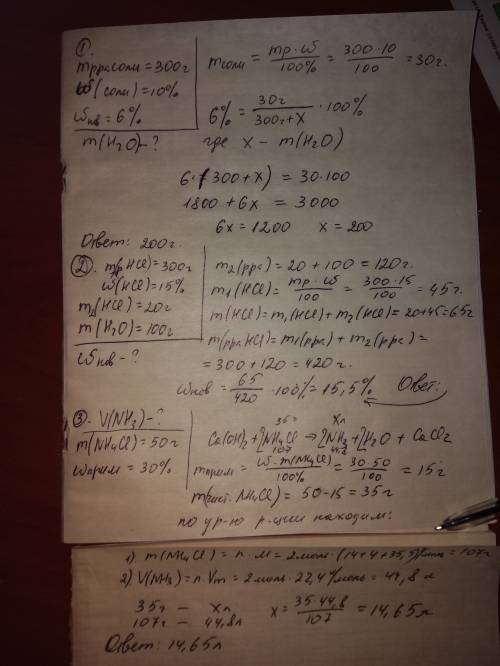 ①.
mрра соли = 300г
ω(соли) = 10%
ωнв = 6%
m(H₂O) - ?
mсоли = mр·ω / 100% = 300·10 / 100 = 30г.
6% = 30г / 300г+x · 100%
где x - m(H₂O)
6·(300+x) = 30·100
1800 + 6x = 3000
6x = 1200 x = 200
Ответ: 200г.
②. m(pHCl) = 300г
ω(HCl) = 15%
m₂(HCl) = 20г
m(H₂O) = 100г
ωнв - ?
m₂(ррс) = 20 + 100 = 120г.
m₁(HCl) = mр·ω / 100 = 300·15 / 100 = 45г.
m(HCl) = m₁(HCl) + m₂(HCl) = 20+45 = 65г
m(рраHCl) = m₁(ррс) + m₂(ррс) =
= 300 + 120 = 420г.
ωнов = 65 / 420 · 100% = 15,5% Ответ:
③. V(NH₃) - ?
m(NH₄Cl) = 50г
ωприм = 30%
35г xл
Ca(OH)₂ + 2NH₄Cl → 2NH₃ + 2H₂O + CaCl₂
107 44,8
mприм = ω·m(NH₄Cl) / 100% = 30·50 / 100 = 15г
m(чист. NH₄Cl) = 50-15 = 35г
по ур-ю р-ции находим:
1) m(NH₄Cl) = n·M = 2моль·(14+4+35,5)г/моль = 107г
2) V(NH₃) = n·Vm = 2моль·22,4л/моль = 44,8 л
35г — xл
107г — 44,8л
x = 35·44,8 / 107 = 14,65л
Ответ: 14,65л